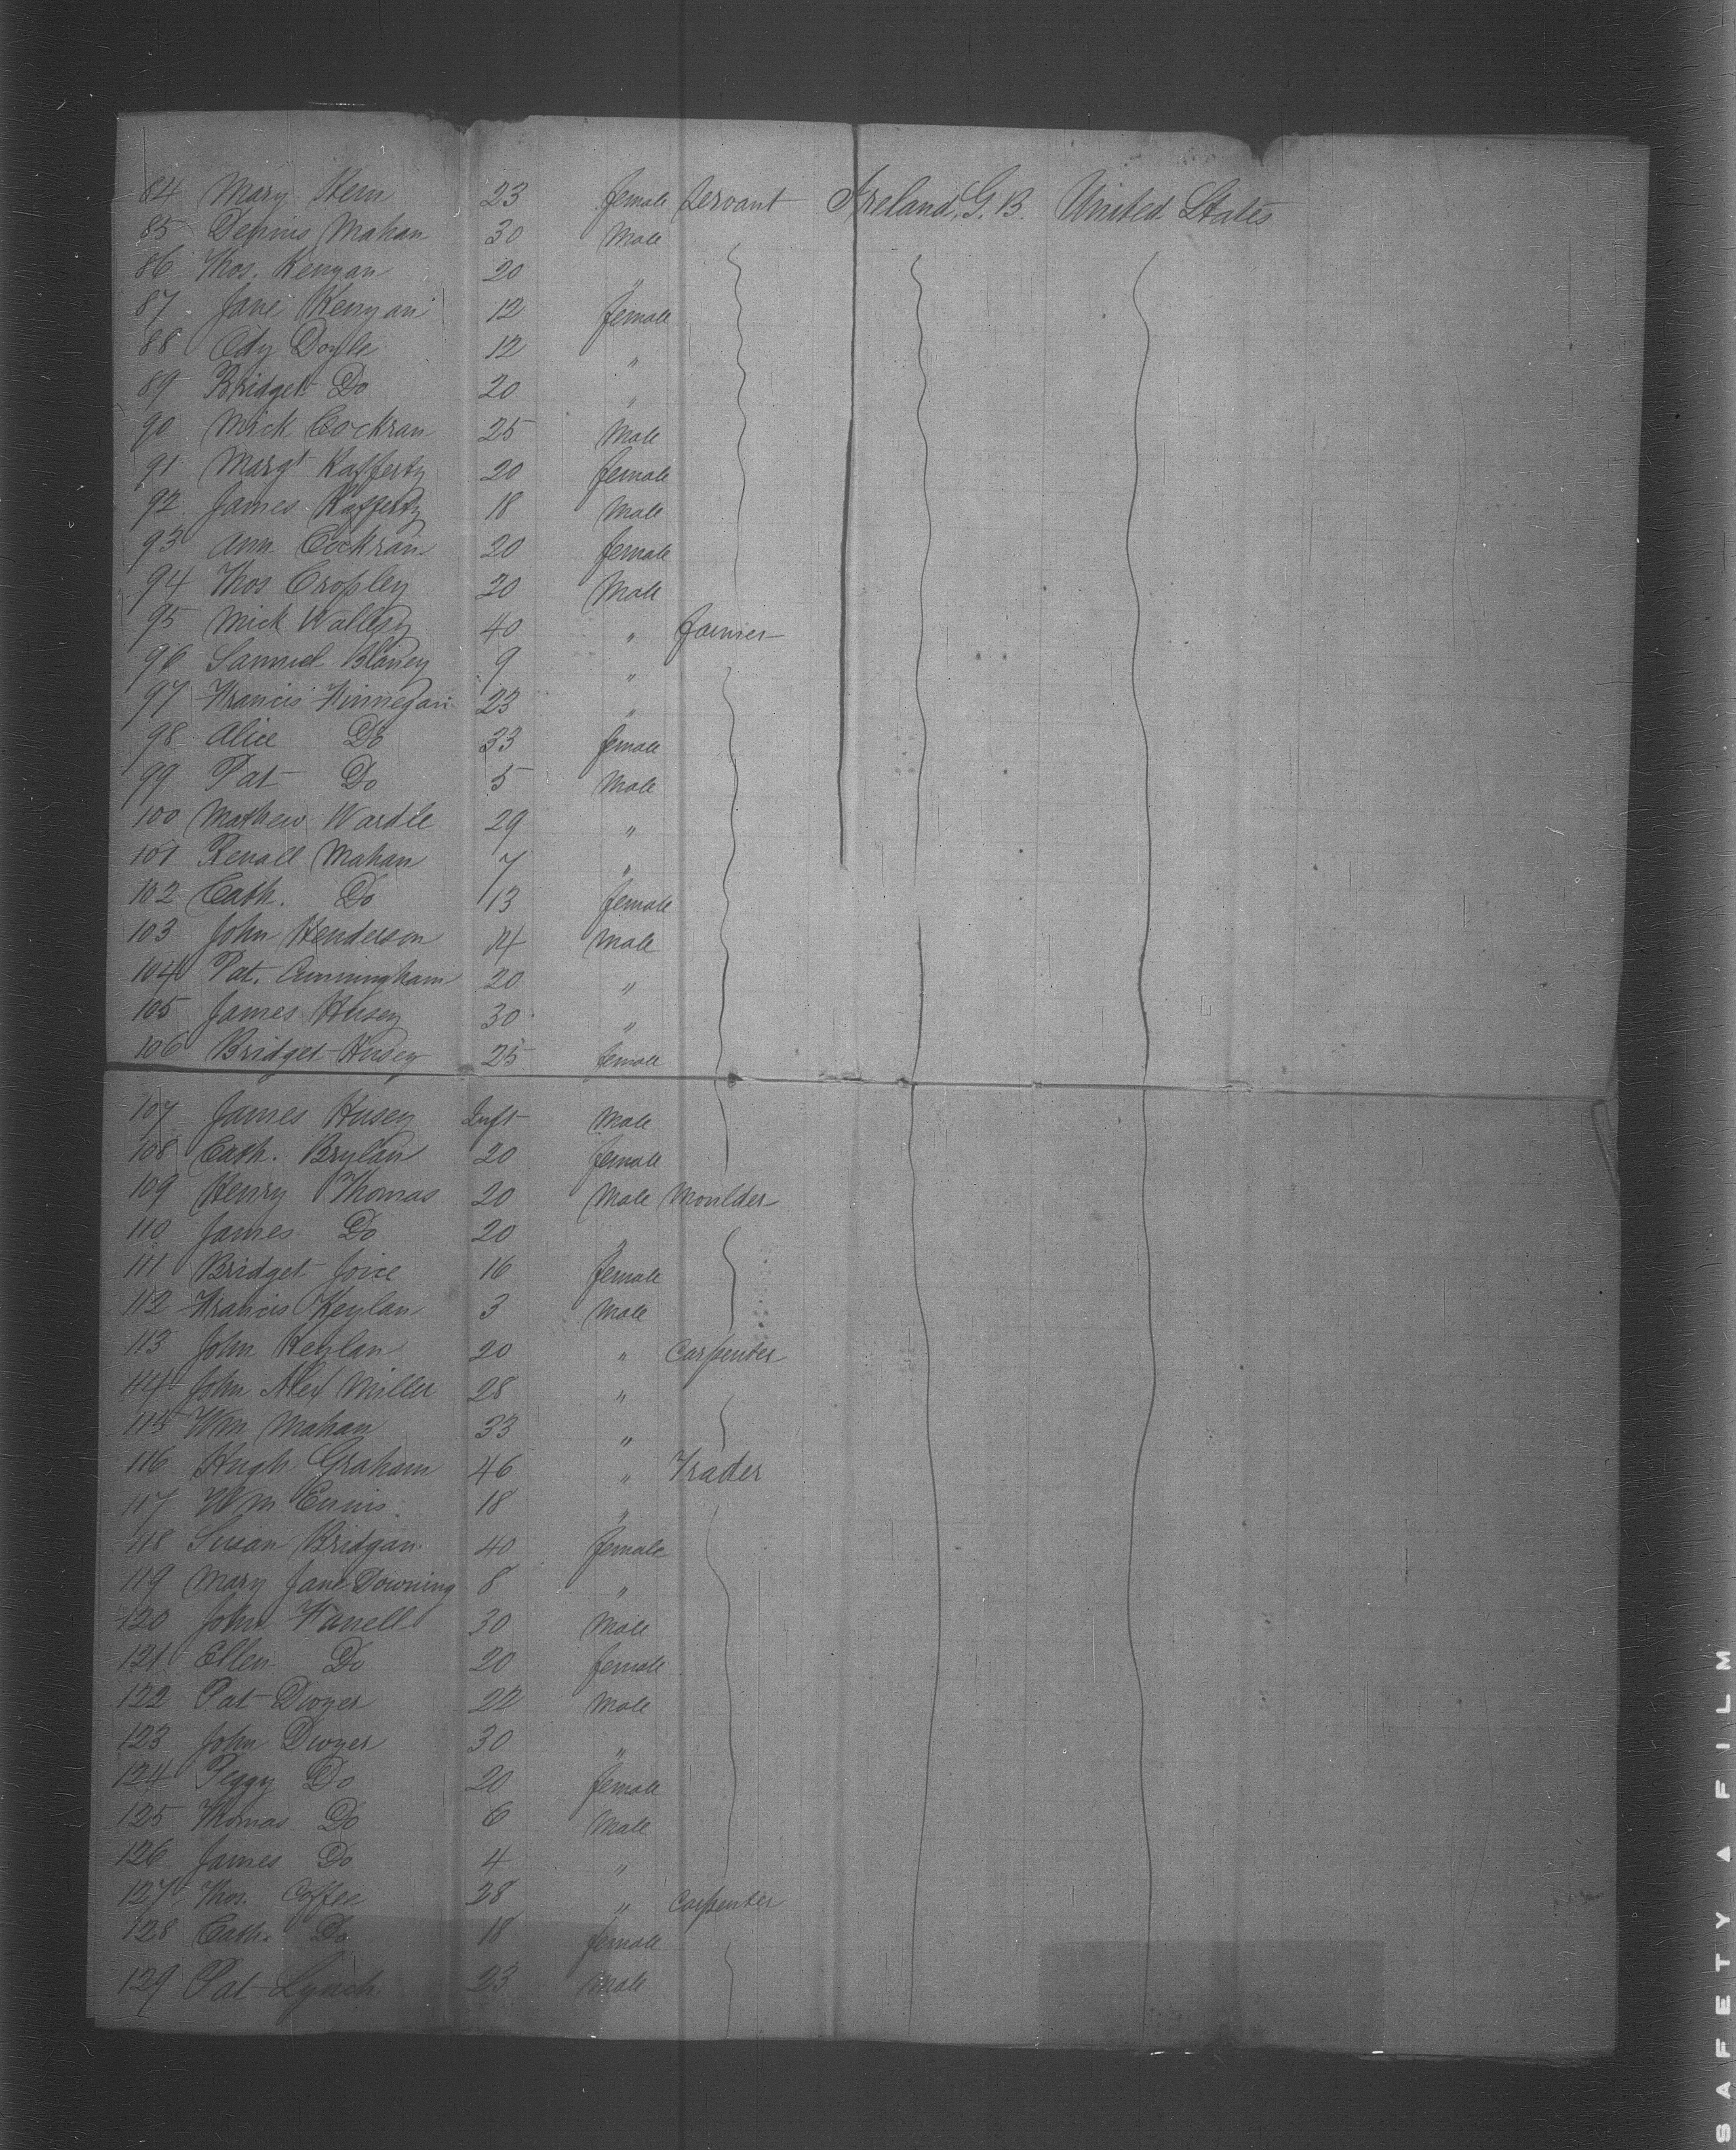 84 Mary Kern 23 female Servant Ireland, G. B. United States
85 Dennis Mahan 30 Male
86 Thos. Kenyan 20 "
87 Jane Kenyan 12 female
88 Edy Doyle 12 "
89 Bridget Do 20 "
90 Mick Cockran 25 Male
91 Margt Rafferty 20 female
92 James Rafferty 18 Male
93 Ann Cockran 20 female
94 Thos Cropley 20 Male
95 Mick 40 " farmer
96 Samuel Blaney 9 "
97 Francis Finnegan 23 "
98 Alice Do 33 female
99 Pat Do 5 Male
100 Mathew Wardle 29 "
101 Mahan 7 "
102 Cath. Do 13 female
103 John Henderson 14 Male
104 Pat. Cunningham 20 "
105 James Husey 30 "
106 Bridget Husey 25 female
107 James Husey Inft Male
108 Cath. Brylan 20 female
109 Henry Thomas 20 Male Moulder
110 James Do 20 "
111 Bridget Joice 16 female
112 Francis Keylan 3 Male
113 John Keylan 20 " Carpenter
114 John Alex Miller 28 "
115 Wm Mahan 33 "
116 Hugh Graham 46 " Trader
117 Wm Ennis 18 "
118 Susan Bridgan 40 female
119 Mary Jane Downing 8 "
120 John Farrell 30 Male
121 Ellen Do 20 female
122 Pat Dwyer 22 Male
123 John Dwyer 30 "
124 Peggy Do 20 female
125 Thomas Do 6 Male
126 James Do 4 "
127 Thos. Coffee 28 " Carpenter
128 Cath. Do 18 female
129 Pat Lynch 23 Male
SAFETY ▲ FILM